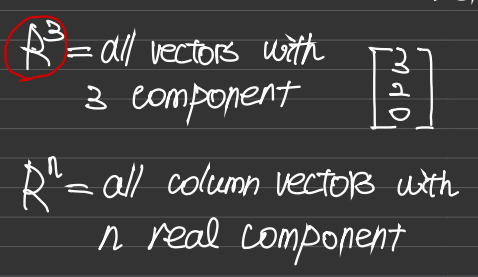 R³ = all vectors with
3 component
[3 2 0]
Rⁿ = all column vectors with
n real component